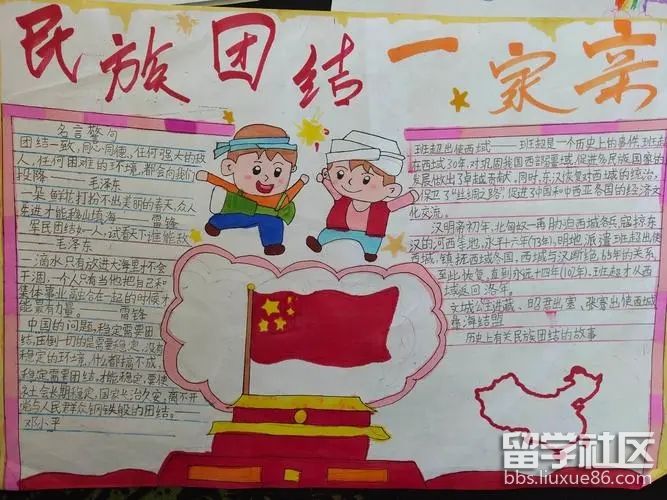 民族团结一家亲
名言警句
团结一致,同心同德,任何强大的敌
人,任何困难的环境,都会向我们
投降——毛泽东
一朵鲜花打扮不出美丽的春天,众人
先进才能移山填海——雷锋
军民团结如一人,试看天下谁能敌
——毛泽东
一滴水只有放进大海里才不会
干涸,一个人只有当他把自己和
集体事业融合在一起的时候才
能最有力量。——雷锋
中国的问题,稳定需要团
结,压倒一切的是需要稳定,没有
稳定的环境,什么都搞不成
稳定需要团结,才能稳定,要使
社会长期稳定,国家长治久安,离不开
党与人民群众钢铁般的团结。
邓小平
班超出使西域——班超是一个历史上的事件,班超
在西域30年,对巩固我国西部疆域,促进多民族国家的
发展做出了卓越贡献,同时,东汉恢复对西域的统治,
保卫了"丝绸之路",促进了中国和中西亚各国的经济文
化交流。
汉明帝初年,北匈奴一再胁迫西域各兵,寇掠东
汉的河西等地,永平十六年(73年),明帝派遣班超出使
西域,镇抚西域各国,西域与汉断绝65年的关系,
至此恢复,直到永元十四年(102年),班超才从西
域返回洛阳。
文成公主进藏、昭君出塞、张骞出使西域
歃海结盟
历史上有关民族团结的故事
留学社区
bbs.liuxue86.com